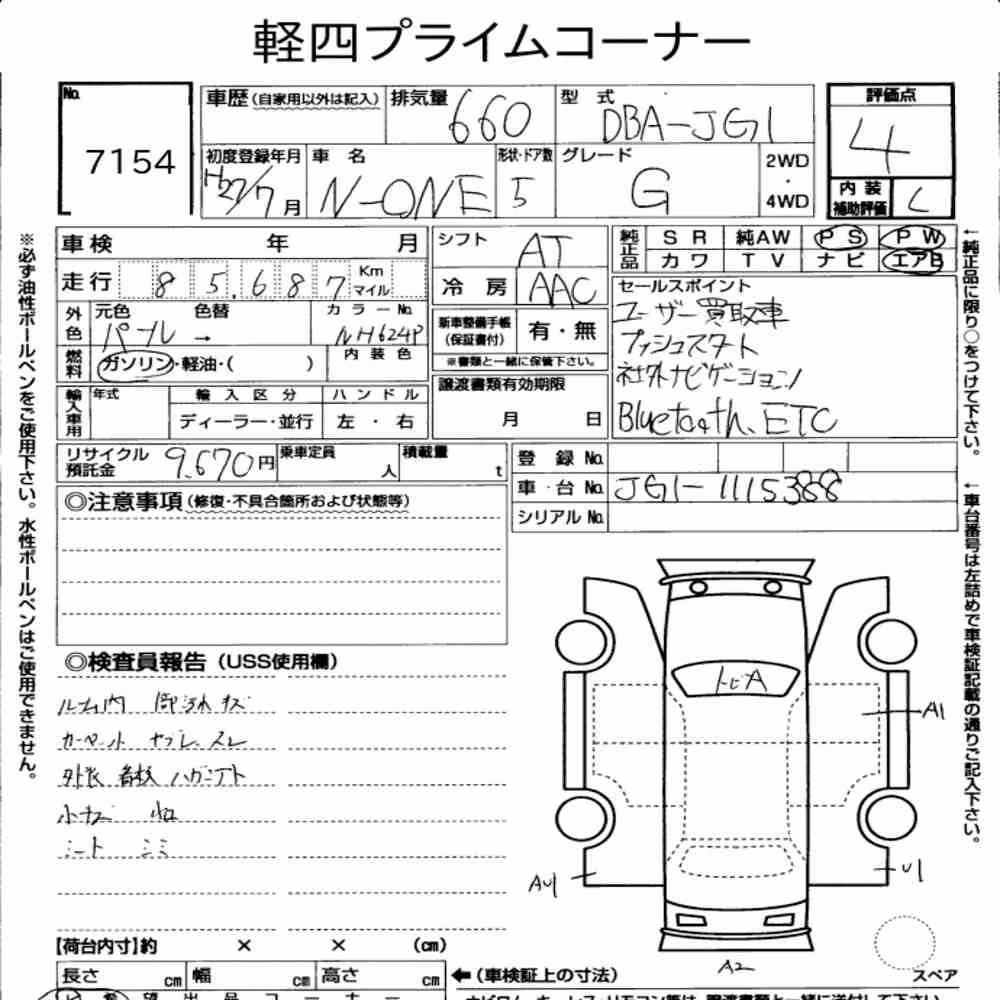 軽四プライムコーナー
No.
7154
車歴 (自家用以外は記入) 排気量 660 型式 DBA-JG1
初度登録年月 H27/7月 車名 N-ONE 形状・ドア数 5 グレード G 2WD・4WD
評価点
4
内装補助評価 C
車検 年 月
走行 85,687 Km マイル
外色 元色 パール → 色替 カラーNo. NH624P
燃料 ガソリン・軽油・( ) 内装色
輸入車用 年式 輸入区分 ハンドル
ディーラー・並行 左・右
シフト AT
冷房 AAC
新車整備手帳(保証書付) 有・無
※書類と一緒に保管下さい。
譲渡書類有効期限
月 日
純正品 SR 純AW PS PW
カワ TV ナビ エアB
セールスポイント
ユーザー買取車
プッシュスタート
社外ナビゲーション
Bluetooth、ETC
リサイクル預託金 9,670円 乗車定員 人 積載量 t
登録No.
車台No. JG1-1115388
シリアルNo.
◎注意事項(修復・不具合箇所および状態等)
◎検査員報告(USS使用欄)
カーペット ヤブレ、スレ
小キズ 凹
シート シミ
トビA
A1
AU1
U1
A2
スペア
【荷台内寸】約 × × (cm)
長さ cm 幅 cm 高さ cm ←(車検証上の寸法)
※必ず油性ボールペンをご使用下さい。水性ボールペンはご使用できません。
←純正品に限り○をつけて下さい。
←車台番号は左詰めで車検証記載の通りご記入下さい。